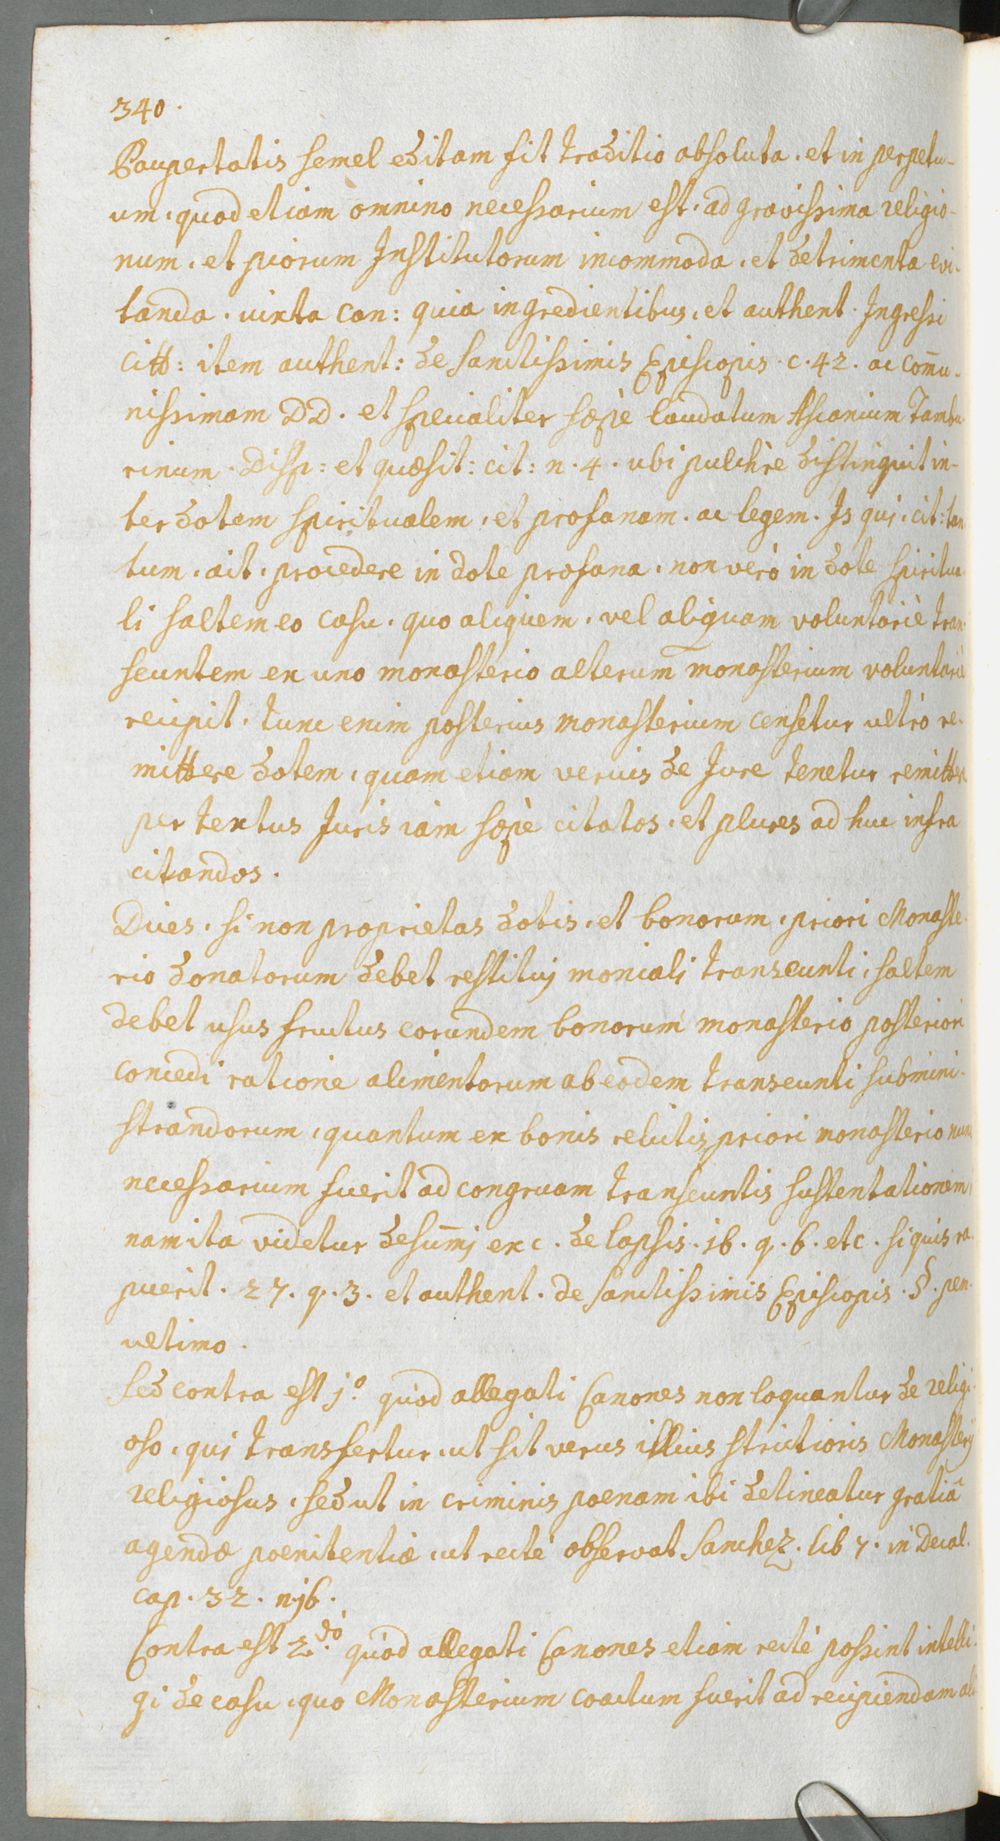 340.
Paupertatis semel editam fit traditio absoluta, et in perpetu-
um, quod etiam omnino necessarium est, ad gravissima religio-
num, et piorum Institutorum incommoda, et detrimenta evi-
tanda. iuxta can: quia ingredientibus, et authent. Ingressi
citt: item authent: de sanctissimis Episcopis. c. 42. ac com̄u-
nissimam DD. et specialiter sæpè laudatum Ascanium Tambu-
rinum. Disp: et quæsit: cit: n. 4. ubi pulchrè distinguit in-
ter dotem spiritualem, et profanam. ac legem. Is qui, cit: tan
tum, ait, procedere in dote profana, non verò in dote spiritua-
li saltem eo casu, quo aliquem, vel aliquam voluntariè tran-
seuntem ex uno monasterio alterum monasterium voluntariè
recipit, tunc enim posterius monasterium censetur ultrò re-
mittere dotem, quam etiam verius de Jure tenetur remittere
per textus Juris iàm sæpè citatos, et plures ad huc infra
citandos.
Dices, si non proprietas dotis, et bonorum, priori Monaste-
rio donatorum debet restituj monialj transeunti, saltem
debet usus fructus eorundem bonorum monasterio posteriori
concedi ratione alimentorum ab eodem transeunti submini-
strandorum, quantum ex bonis relictis priori monasterio nunc
necessarium fuerit ad congruam transeuntis sustentationem,
nam ita videtur desum̄j ex c. de lapsis. 16. q. 6. et c. si quis ra-
puerit. 27. q. 3. et authent. de sanctissimis Episcopis. §. pen-
ultimo.
Sed contra est 1.º quòd allegati Canones non loquantur de religi-
oso, quj transfertur, ut sit verus illius strictioris Monasterij
religiosus, sed ut in criminis poenam ibi detineatur gratiâ
agendæ poenitentiæ, ut rectè observat Sanchez. lib 7. in Decal.
cap. 32. n. 16.
Contra est 2.dò quòd allegati Canones etiam rectè possint intelli-
gi de casu, quo Monasterium coactum fuerit ad recipiendam ali